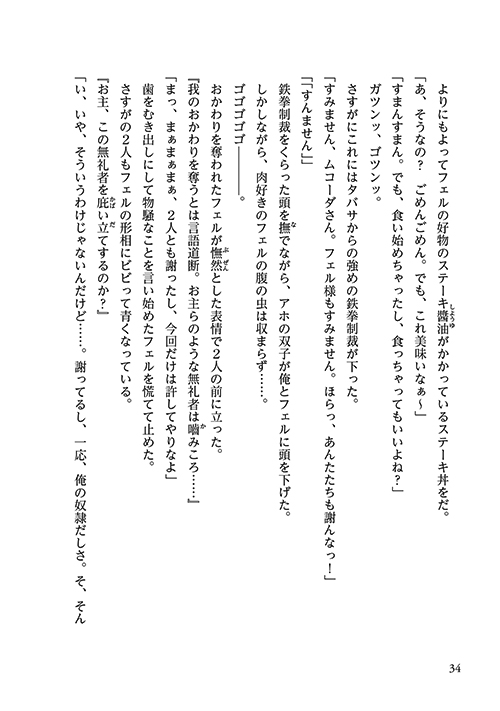 よりにもよってフェルの好物のステーキ醬油がかかっているステーキ丼をだ。
「あ、そうなの？　ごめんごめん。でも、これ美味いなぁ～」
「すまんすまん。でも、食い始めちゃったし、食っちゃってもいいよね？」
ガツンッ、ゴツンッ。
さすがにこれにはタバサからの強めの鉄拳制裁が下った。
「すみません、ムコーダさん。フェル様もすみません。ほらっ、あんたたちも謝んなっ！」
「「すんません」」
鉄拳制裁をくらった頭を撫でながら、アホの双子が俺とフェルに頭を下げた。
しかしながら、肉好きのフェルの腹の虫は収まらず……。
ゴゴゴゴゴ――――。
おかわりを奪われたフェルが憮然とした表情で２人の前に立った。
『我のおかわりを奪うとは言語道断。お主らのような無礼者は嚙みころ……』
「まっ、まぁまぁまぁ、２人とも謝ったし、今回だけは許してやりなよ」
歯をむき出しにして物騒なことを言い始めたフェルを慌てて止めた。
さすがの２人もフェルの形相にビビって青くなっている。
『お主、この無礼者を庇い立てするのか？』
「い、いや、そういうわけじゃないんだけど……。謝ってるし、一応、俺の奴隷だしさ。そ、そん
34